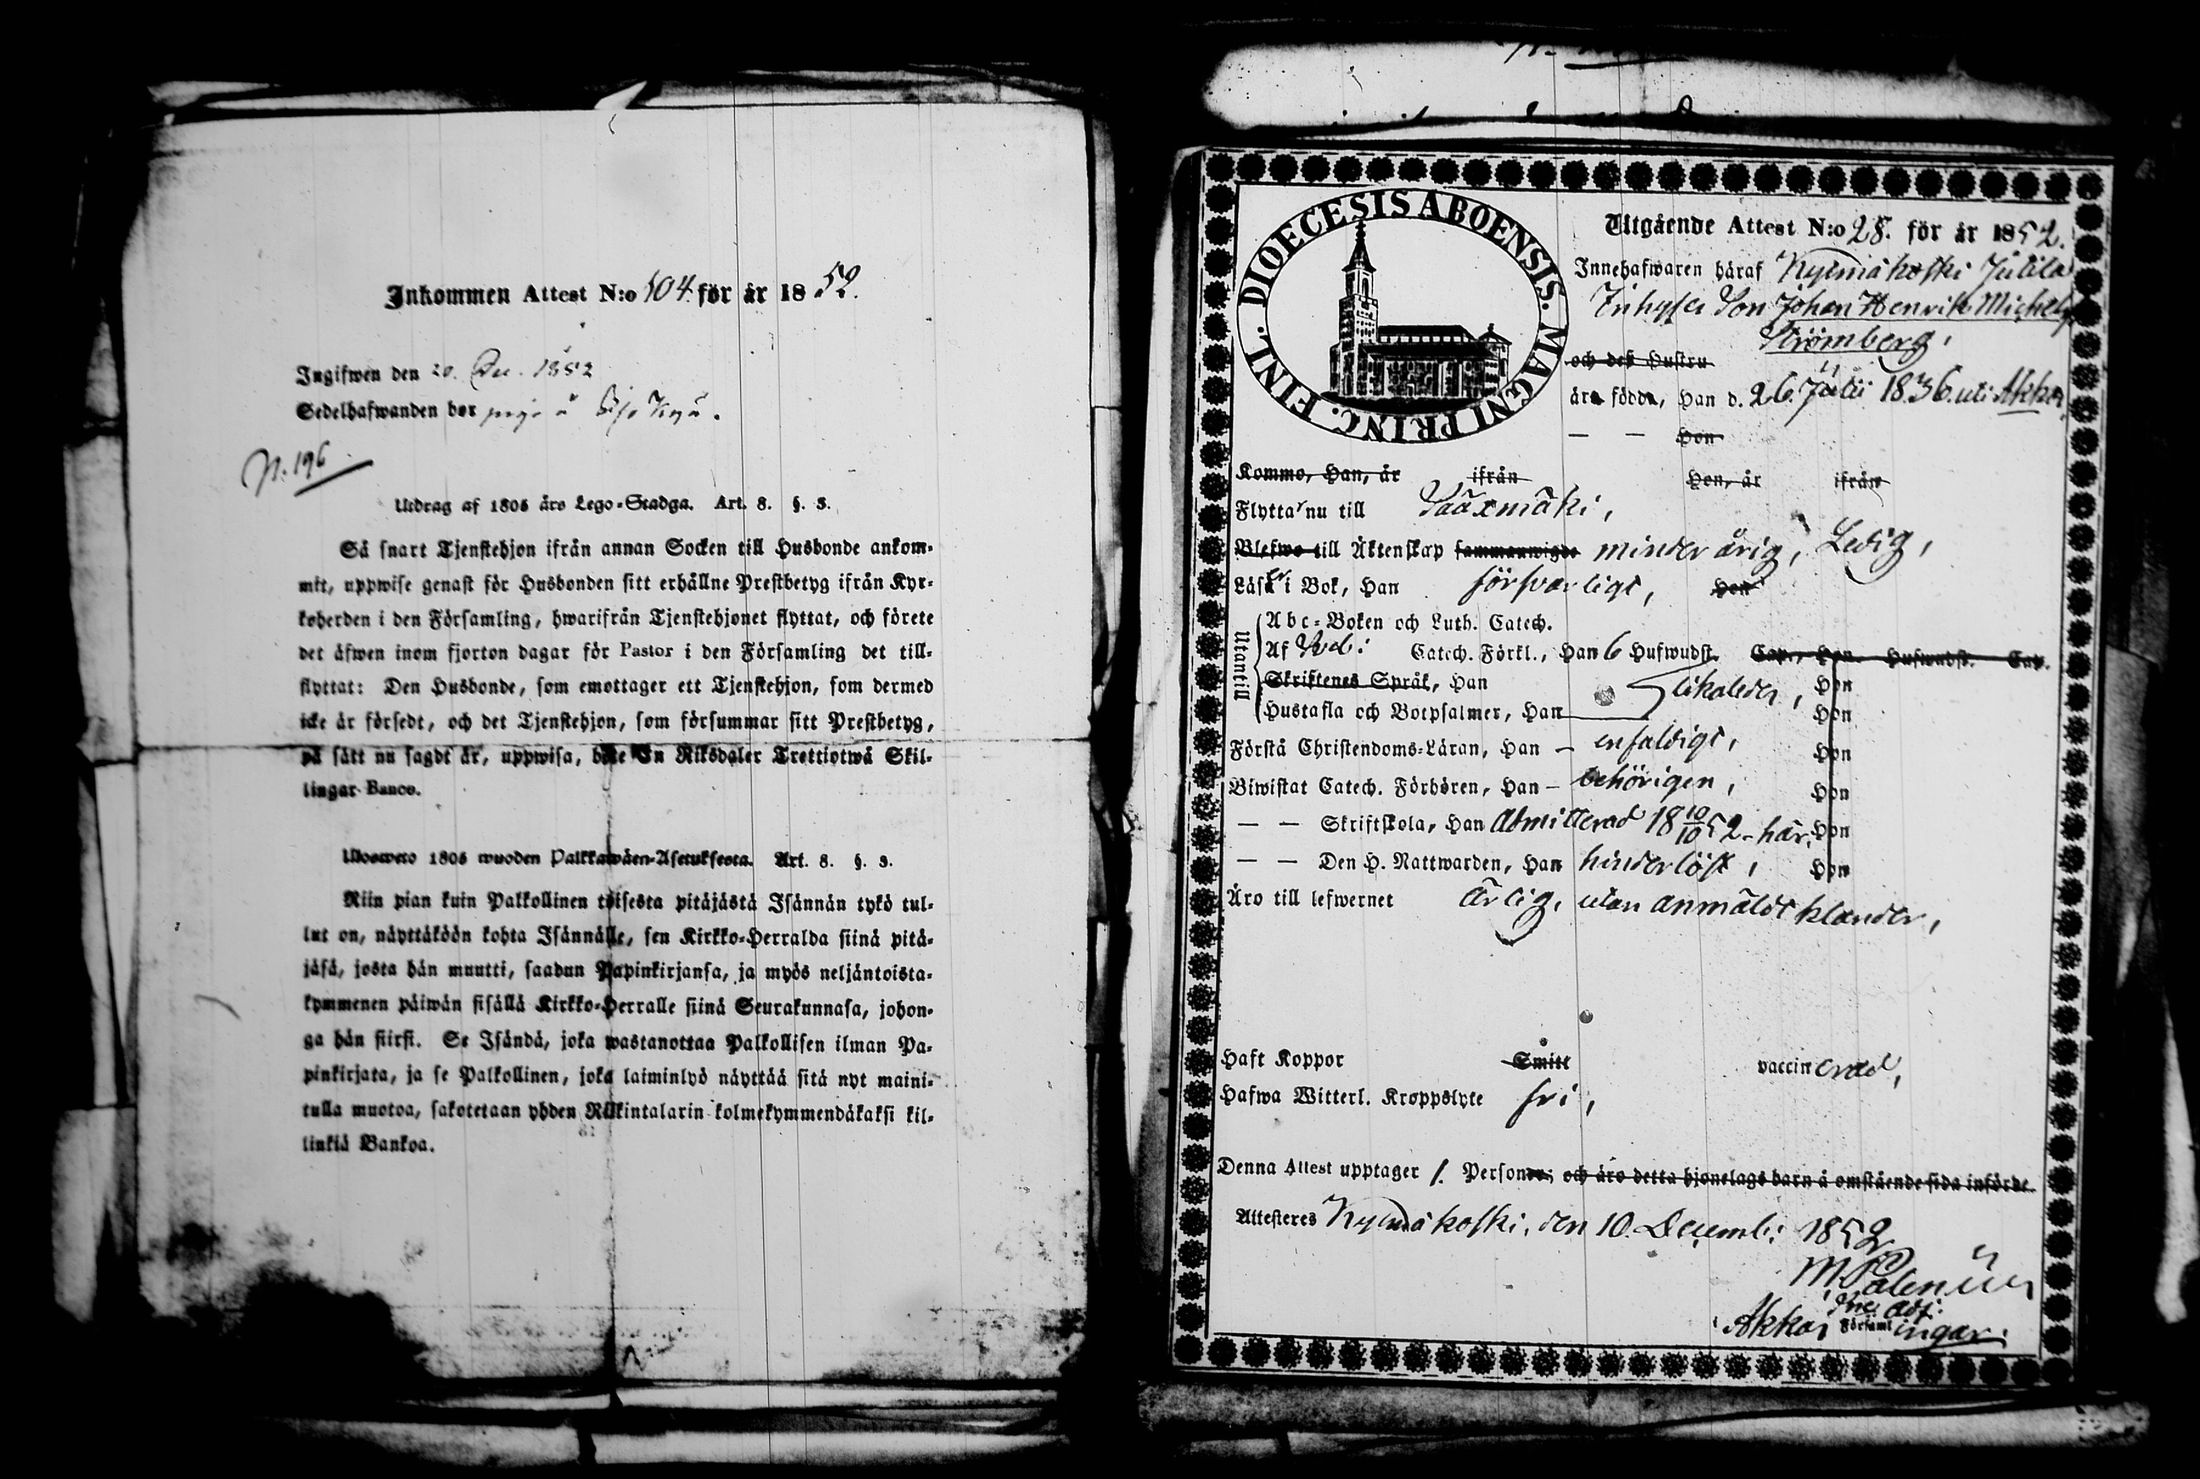 Inkommen Attest N:o 104 för år 1852.
Ingifwen den 20. Dec. 1852
Sedelhafwanden bor
N. 196
Utdrag af 1805 års Lego-Stadga. Art. 8. §. 3.
Så snart Tjenstehjon ifrån annan Socken till Husbonde ankom-
mit, uppwise genast för Husbonden sitt erhållne Prestbetyg ifrån Kyr-
koherden i den Församling, hwarifrån Tjenstehjonet flyttat, och förete
det äfwen inom fjorton dagar för Pastor i den Församling det till-
flyttat: Den Husbonde, som emottager ett Tjenstehjon, som dermed
icke är försedt, och det Tjenstehjon, som försummar sitt Prestbetyg,
på sätt nu sagdt är, uppwisa, böte En Riksdaler Trettiotwå Skil-
lingar Banco.
Ulosweto 1805 wuoden Palkkawäen-Asetuksesta. Art. 8. §. 3.
Niin pian kuin Palkollinen toisesta pitäjästä Isännän tykö tul-
lut on, näyttäköön kohta Isännälle, sen Kirkko-Herralda siinä pitä-
jäsä, josta hän muutti, saadun Papinkirjansa, ja myös neljäntoista-
kymmenen päiwän sisällä Kirkko-Herralle siinä Seurakunnasa, johon-
ga hän siirsi. Se Isändä, joka wastanottaa Palkollisen ilman Pa-
pinkirjata, ja se Palkollinen, joka laiminlyö näyttää sitä nyt maini-
tulla muotoa, sakotetaan yhden Riikintalarin kolmekymmendäkaksi kil-
linkiä Bankoa.
FINL. DIOECESIS ABOENSIS. MAGNI PRINC.
Utgående Attest N:o 28. för år 1852.
Innehafwaren häraf Kylmäkoski Juttila
Inhyses Son Johan Henrik Michelss
Strömberg,
och deß Hustru
äro födde, Han d. 26. Julii 1836. uti Akkas,
— — Hon
Komme, Han, år ifrån Hon, år ifrån
Flyttar nu till Sääxmäki,
Blefwo till Äktenskap sammanwigde minderårig, Ledig,
Läser i Bok, Han försvarligt, Hon
Utantill
Abc-Boken och Luth. Catech.
Af Catech. Förkl., Han 6 Hufwudst. Cap., Hon Hufwudst. Cap.
Skriftenes Språk, Han likaledes, Hon
Hustafla och Botpsalmer, Han Hon
Förstå Christendoms-Läran, Han — enfaldigt, Hon
Biwistat Catech. Förhören, Han — behörigen, Hon
— — Skriftskola, Han Admitterad 18 10/10 52 - här. Hon
— — Den H. Nattwarden, Han hinderlöst, Hon
Äro till lefwernet ärlig, utan anmäldt klander,
Haft Koppor Smitt vaccinerad,
Hafwa Witterl. Kroppslyte fri,
Denna Attest upptager 1. Personer; och äro detta hjonelags barn å omstående sida införde
Attesteres Kylmäkoski, den 10. Decemb: 1852
M Palenius
Adj:
Akkas Församlingar.